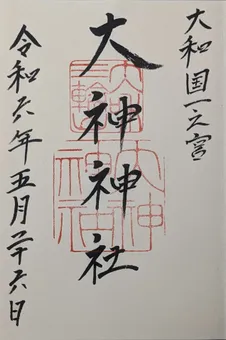 大和国一之宮
大神神社
令和六年五月二十六日
大神
神社